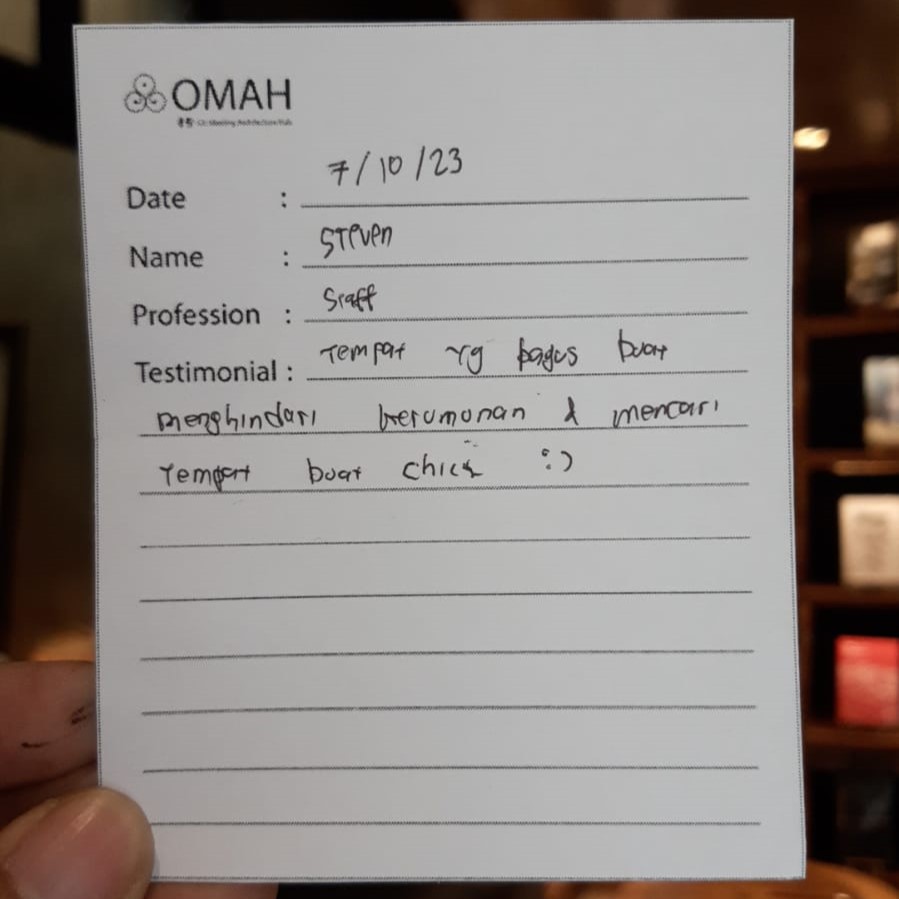 OMAH
Date : 7/10/23
Name : Steven
Profession : Staff
Testimonial : Tempat yg bagus buat
menghindari kerumunan & mencari
tempat buat chick :)